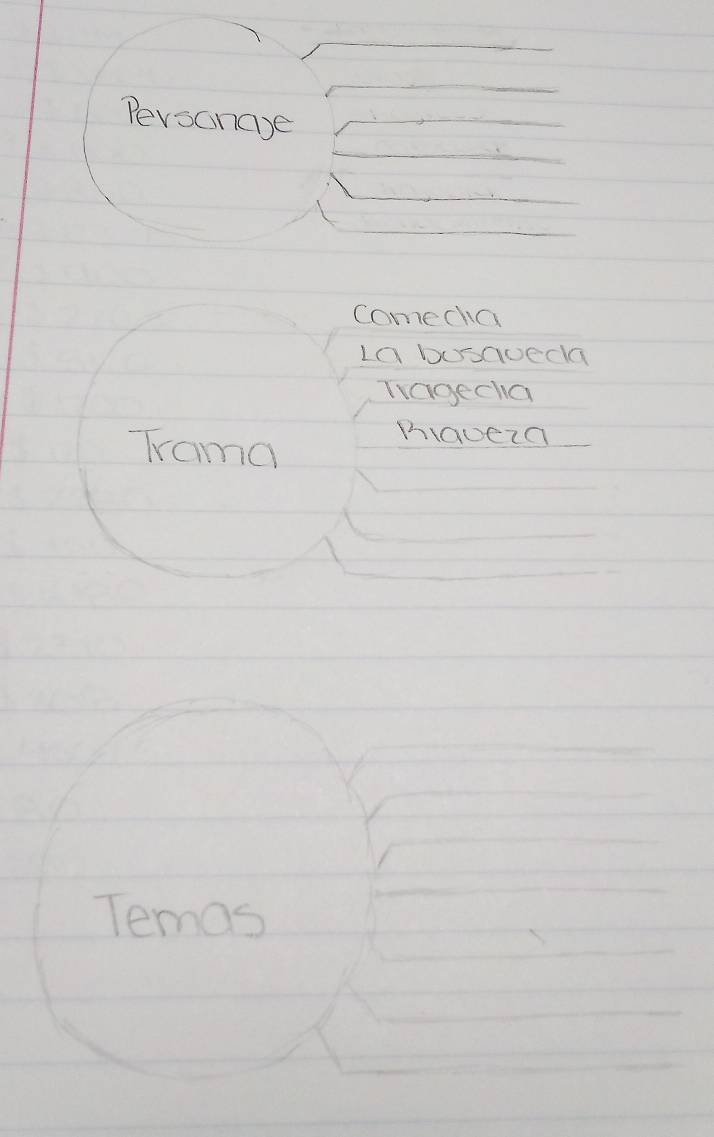 Personaje
Comedia
La busqueda
Tragedia
Riqueza
Trama
Temas